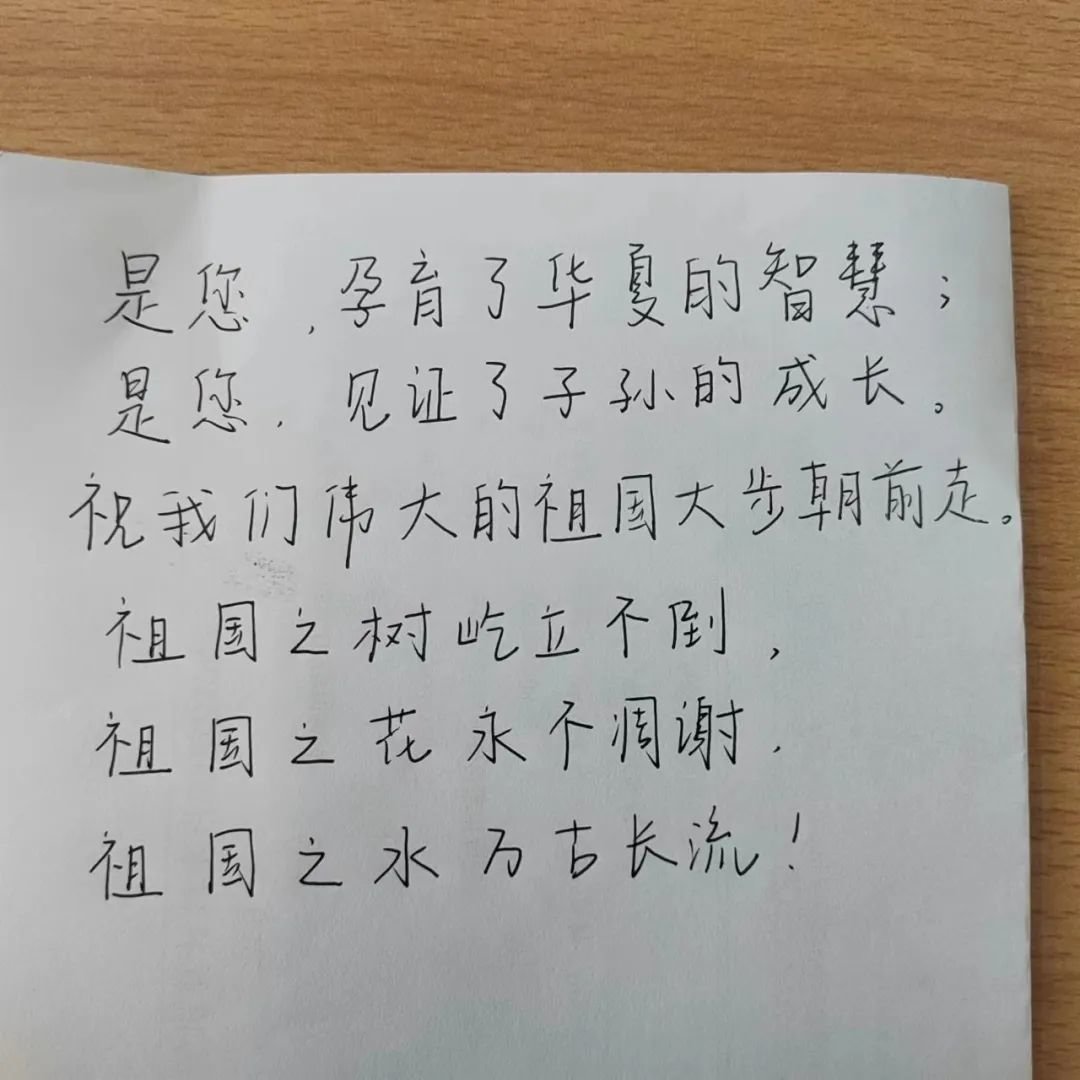 是您，孕育了华夏的智慧；
是您，见证了子孙的成长。
祝我们伟大的祖国大步朝前走。
祖国之树屹立不倒，
祖国之花永不凋谢，
祖国之水万古长流！